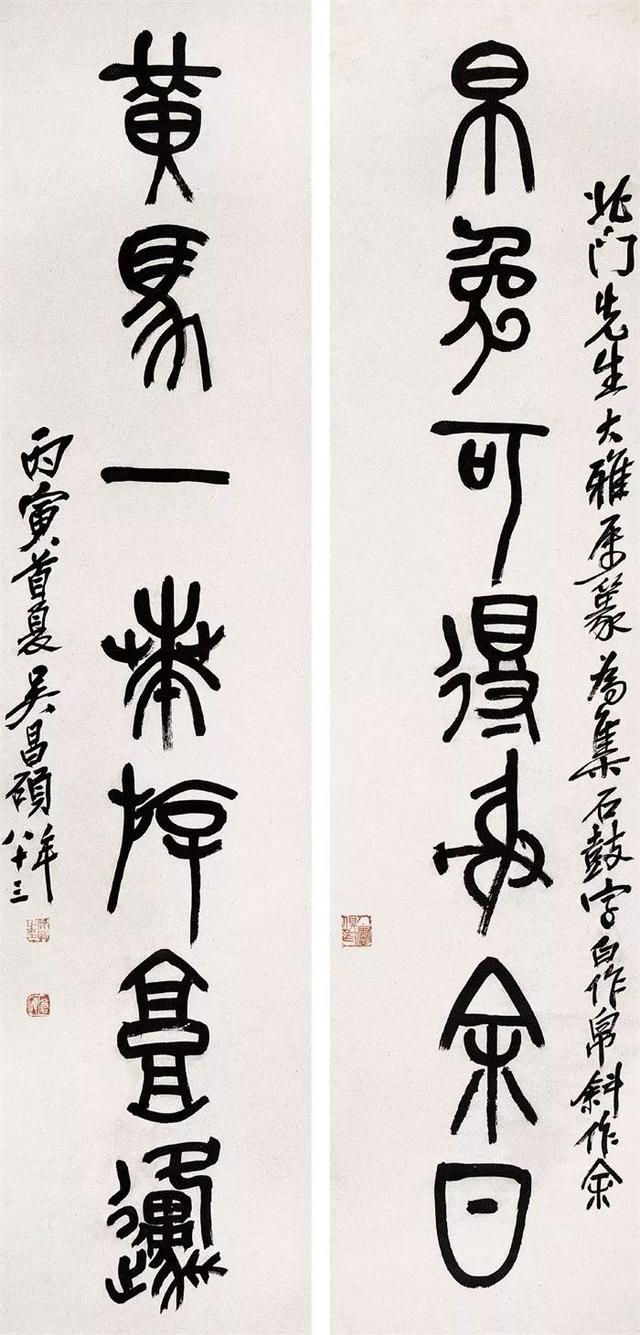 北门先生大雅属篆为集石鼓字白作帛斜作余
帛兔可得射余日
黄馬一斿邍
丙寅首夏吴昌碩年八十三